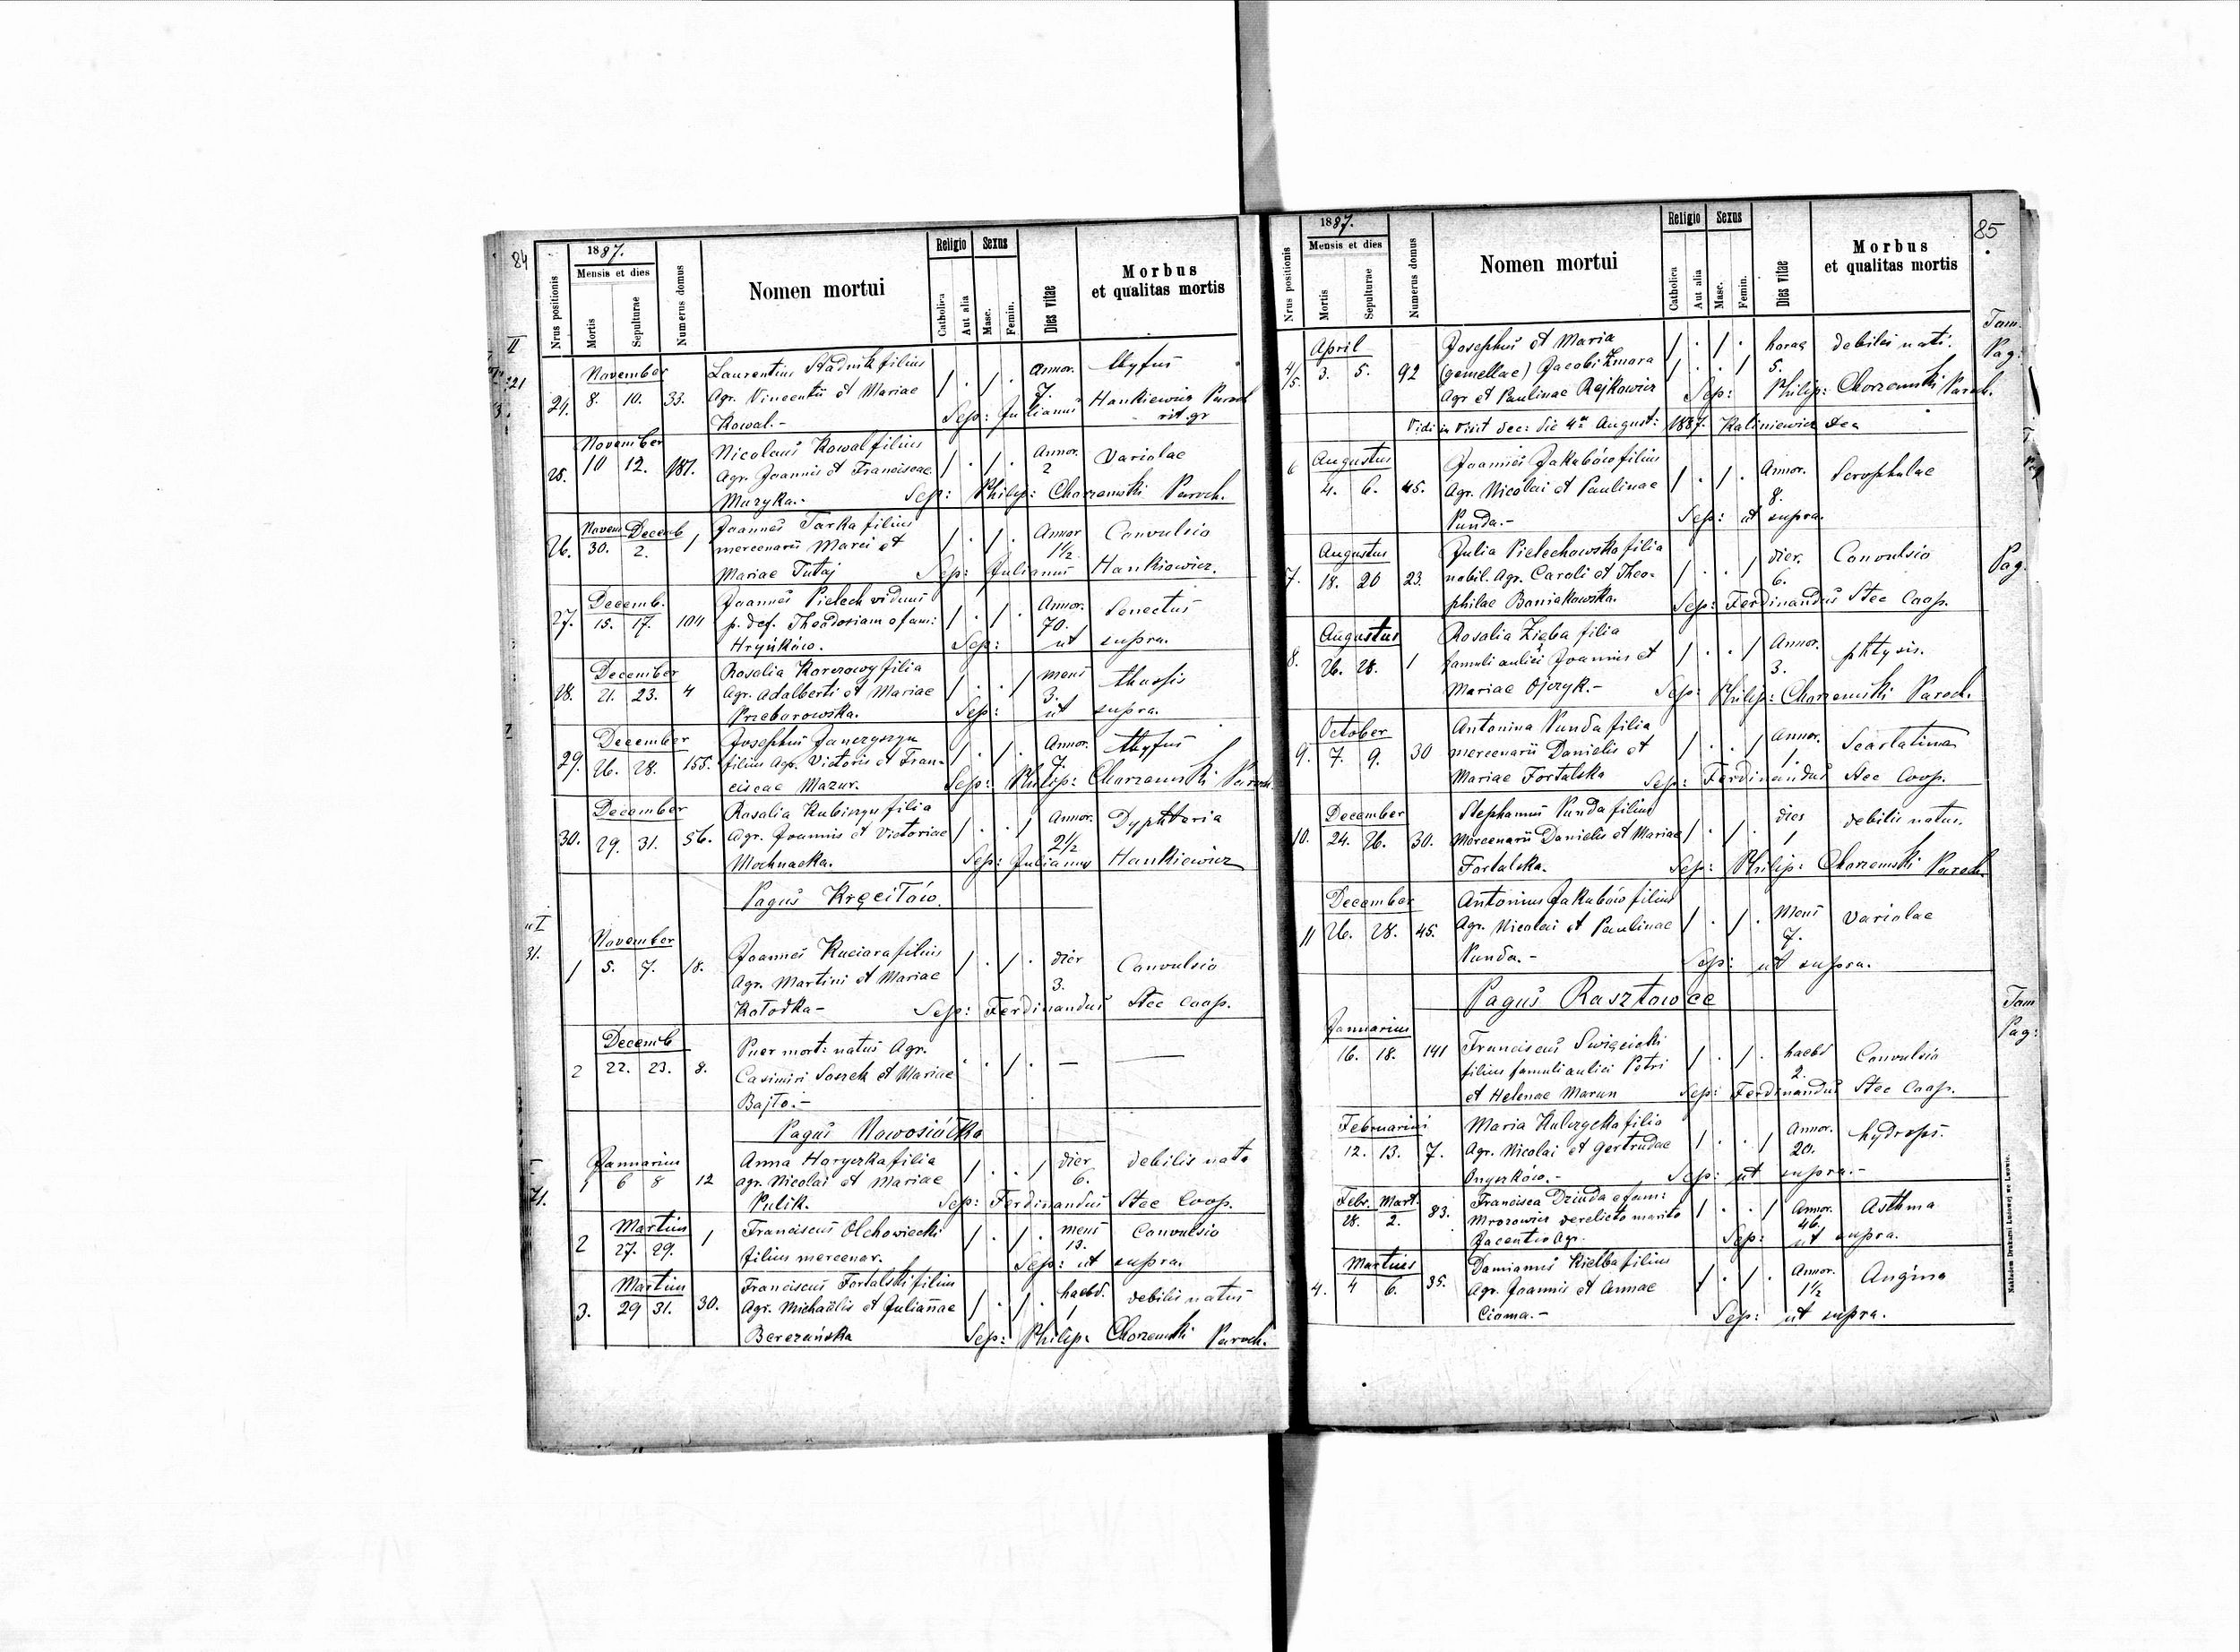 84
1887.
Nrus positionis
Mensis et dies
Mortis
Sepulturae
Numerus domus
Nomen mortui
Religio
Catholica
Aut alia
Sexus
Masc.
Femin.
Dies vitae
Morbus
et qualitas mortis
November
24. 8. 10. 33. Laurentius Stadnik filius Annor. thyfus
Agr. Vincentii et Mariae 7.
Kowal.- Sep: Julianus Hankiewicz Paroch
rit. gr
November
25. 10 12. 187. Nicolaus Kowal filius Annor. Variolae
Agr. Joannis et Franciscae 2
Muzyka.- Sep: Philip: Chorzemski Paroch.
Novem Decemb
26. 30. 2. 1 Joannes Tarka filius Annor Convulsio
mercenarii Marci et 1½
Mariae Tutaj Sep: Julianus Hankiewicz.
Decemb.
27. 15. 17. 104 Joannes Pielech viduus Annor. Senectus
p. def. Theodosiam o fam: 70.
Hryńków. Sep: ut supra.
December
28. 21. 23. 4 Rosalia Korczowy filia mens thussis
Agr. Adalberti et Mariae 3.
Przeborowska. Sep: ut supra.
December
29. 26. 28. 155. Josephus Janczyszyn Annor. thyfus
filius Agr. Victoris et Fran- 7.
ciscae Mazur. Sep: Philip: Chorzemski Paroch.
December
30. 29. 31. 56. Rosalia Kubiszyn filia Annor. Dyphteria
Agr. Joannis et Victoriae 2½
Mochnacka. Sep: Julianus Hankiewicz
Pagus Kręciłów.
November
1 5. 7. 18. Joannes Kuciara filius dier Convulsio
Agr. Martini et Mariae 3.
Kołodka- Sep: Ferdinandus Stec Coop.
Decemb
2 22. 23. 8. Puer mort: natus Agr. —
Casimiri Soszek et Mariae
Bajto.-
Pagus Nowosiółka
Januarius
1 6 8 12 Anna Haryczka filia dier debilis nata
agr. Nicolai et Mariae 6.
Pulik. Sep: Ferdinandus Stec Coop.
Martius
2 27. 29. 1 Franciscus Olchowiecki mens Convulsio
filius mercenar. 13.
Sep: ut supra.
Martius
3. 29 31. 30. Franciscus Fortalski filius haebd. debilis natus
Agr. Michaëlis et Julianae 1
Berezańska Sep: Philip: Chorzemski Paroch.
85
1887.
Nrus positionis
Mensis et dies
Mortis
Sepulturae
Numerus domus
Nomen mortui
Religio
Catholica
Aut alia
Sexus
Masc.
Femin.
Dies vitae
Morbus
et qualitas mortis
April
4/5. 3. 5. 92 Josephus et Maria horae debiles nati.
(gemellae) Jacobi Kmara 5.
Agr et Paulinae Rejkowicz Sep: Philip: Chorzemski Paroch.
Vidi in visit dec: die 4a August: 1887. Kaliniewicz Dec
Augustus
6 4. 6. 45. Joannes Jakubów filius Annor. Scrophulae
Agr. Nicolai et Paulinae 8.
Punda.- Sep: ut supra.
Augustus
7. 18. 20 23. Julia Pielechowska filia dier. Convulsio
nobil. Agr. Caroli et Theo- 6.
philae Baniakowska. Sep: Ferdinandus Stec Coop.
Augustus
8. 26. 28. 1 Rosalia Zięba filia Annor. phtysis.
famuli aulici Joannis et 3.
Mariae Ojczyk.- Sep: Philip: Chorzemski Paroch.
October
9. 7. 9. 30 Antonina Punda filia Annor. Scarlatina
mercenarii Danielis et 1.
Mariae Fortalska Sep: Ferdinandus Stec Coop.
December
10. 24. 26. 30. Stephanus Punda filius dies debilis natus.
Mercenarii Danielis et Mariae 1
Fortalska. Sep: Philip: Chorzemski Paroch.
December
11 26. 28. 45. Antonius Jakubów filius Mens Variolae
Agr. Nicolai et Paulinae 7.
Punda.- Sep: ut supra.
Pagus Rasztowce
Januarius
16. 18. 141 Franciscus Swięcicki haebd Convulsio
filius famuli aulici Petri 2.
et Helenae Marun Sep: Ferdinandus Stec Coop.
Februarius
12. 13. 7. Maria Kulczycka filia Annor. hydrops.
Agr. Nicolai et Gertrudae 20.
Onyszków.- Sep: ut supra.-
Febr. Mart.
28. 2. 83. Francisca Dziuda o fam: Annor. Asthma
Mrozowicz derelicto marito 46.
Jacentio Agr. Sep: ut supra.
Martius
4. 4 6. 35. Damianus Kielba filius Annor. Angina
Agr. Joannis et Annae 1½
Cioma.- Sep: ut supra.
Tom.
Pag:
Pag.
Tom
Pag:
Nakładem Drukarni Ludowej we Lwowie.